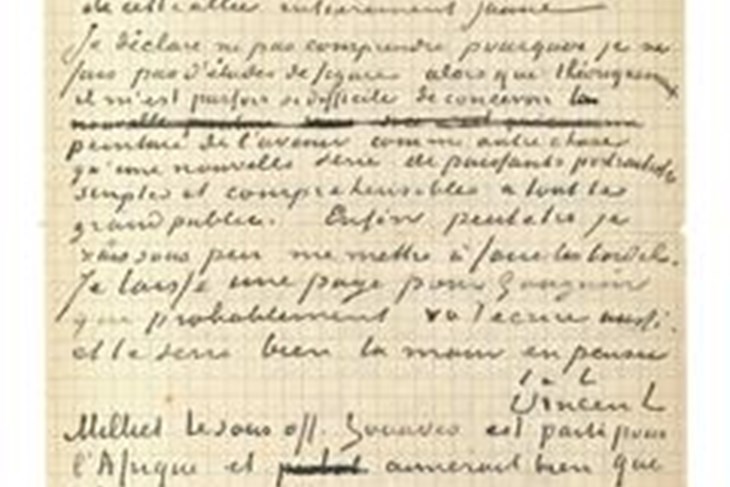 de cette allée entièrement jaune
Je déclare ne pas comprendre pourquoi je ne
fais pas d'études de figure alors que théoriquement
il m'est parfois si difficile de concevoir la
peinture de l'avenir comme autre chose
qu'une nouvelle serie de puissants portraitistes
simples et comprehensibles à tout le
grand public. Enfin peutetre je
vais sous peu me mettre à faire les bordels.
Je laisse une page pour Gauguin
que probablement va t'ecrire aussi.
et te serre bien la main en pensée
t. à t.
Vincent
Milliet le sous off. Zouaves est parti pour
l'Afrique et aimerait bien que